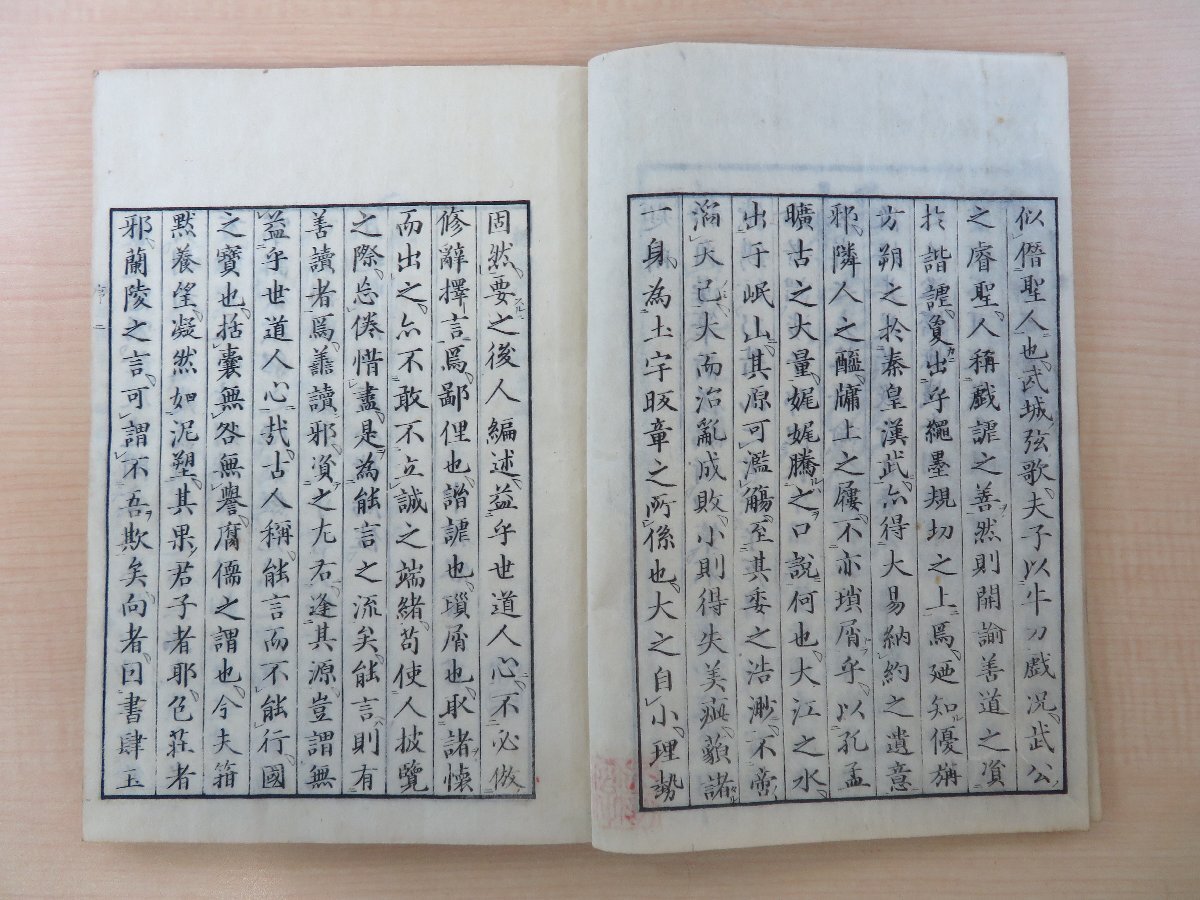 似僭聖人也武城弦歌夫子以牛刀戲況武公
之睿聖人稱戲謔之善然則開諭善道之資
於諧謔貟出乎繩墨規切之上焉廼知優旃
方朔之於秦皇漢武亦得大易納約之遺意
邪隣人之醯牖上之屨不亦瑣屑乎以孔孟
曠古之大量娓娓騰之口說何也大江之水
出于岷山其原可濫觴至其委之浩渺不啻
滔天已大而治亂成敗小則得失美疵顙諸
一身為土宇昄章之所係也大之自小理勢
固然要之後人編述益乎世道人心不必倣
修辭擇言焉鄙俚也諧謔也瑣屑也取諸懷
而出之亦不敢不立誠之端緒苟使人披覽
之際忘倦惜盡是為能言之流矣能言則有
善讀者焉善讀邪資之左右逢其源豈謂無
益乎世道人心哉古人稱能言而不能行國
之寶也括囊無咎無譽腐儒之謂也今夫箝
默養望凝然如泥塑其果君子者耶色莊者
邪蘭陵之言可謂不吾欺矣向者曰書肆玉
序 二